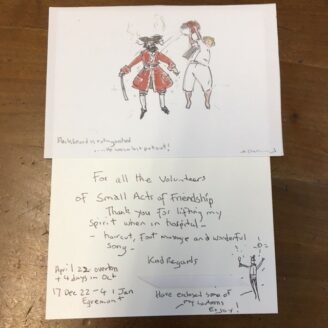 Blackbeard is not ignited
For all the Volunteers
of Small Acts of Friendship
Thank you for lifting my
spirit when in hospital -
- haircut, foot massage and wonderful
song -
Kind Regards
April 22 overton
+ 4 days in Oct
17 Dec 22 - 4 Jan
Egremont
Have enclosed some of
my cartoons
Enjoy!